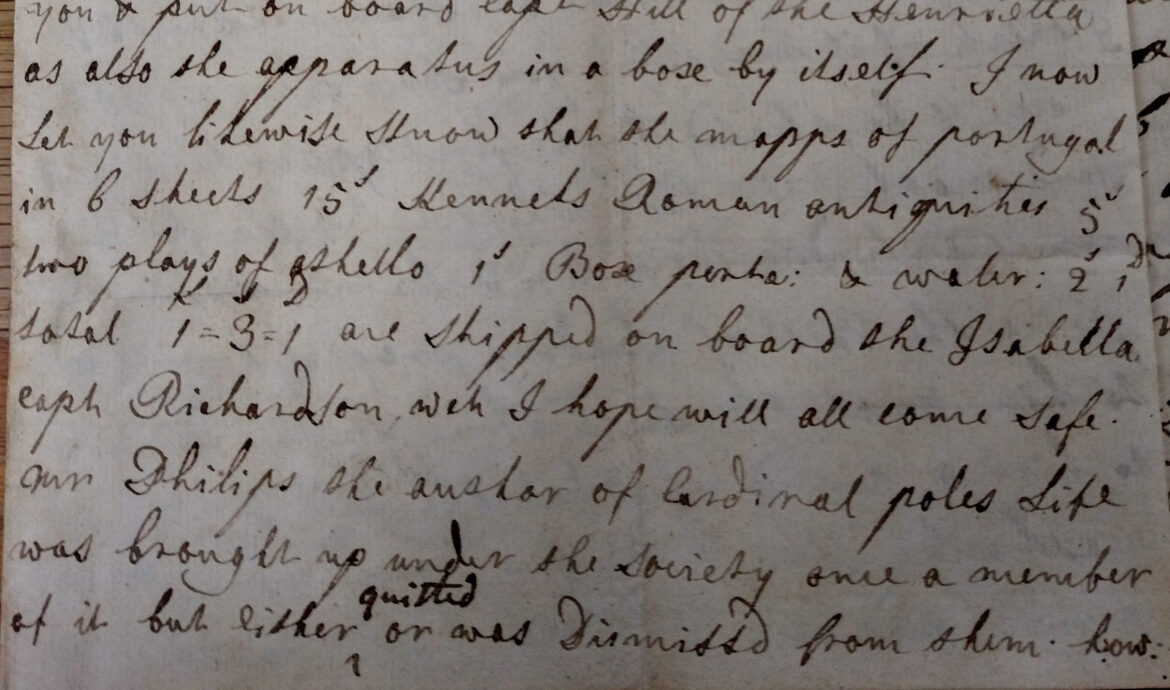 you & put on board capt Hill of the Henrietta
as also the apparatus in a boxe by itself. I now
Let you likewise know that the mapps of portugal
in 6 sheets 15s Kennets Roman antiquities 5s
two plays of othello 1s Boxe porta: & water: 2s 1D
total 1=3=1 are shipped on board the Isabella
capt Richardson, wch I hope will all come safe.
mr Philips the author of Cardinal poles Life
was brought up under the society once a member
quitted
of it but either or was Dismissd from them. how: